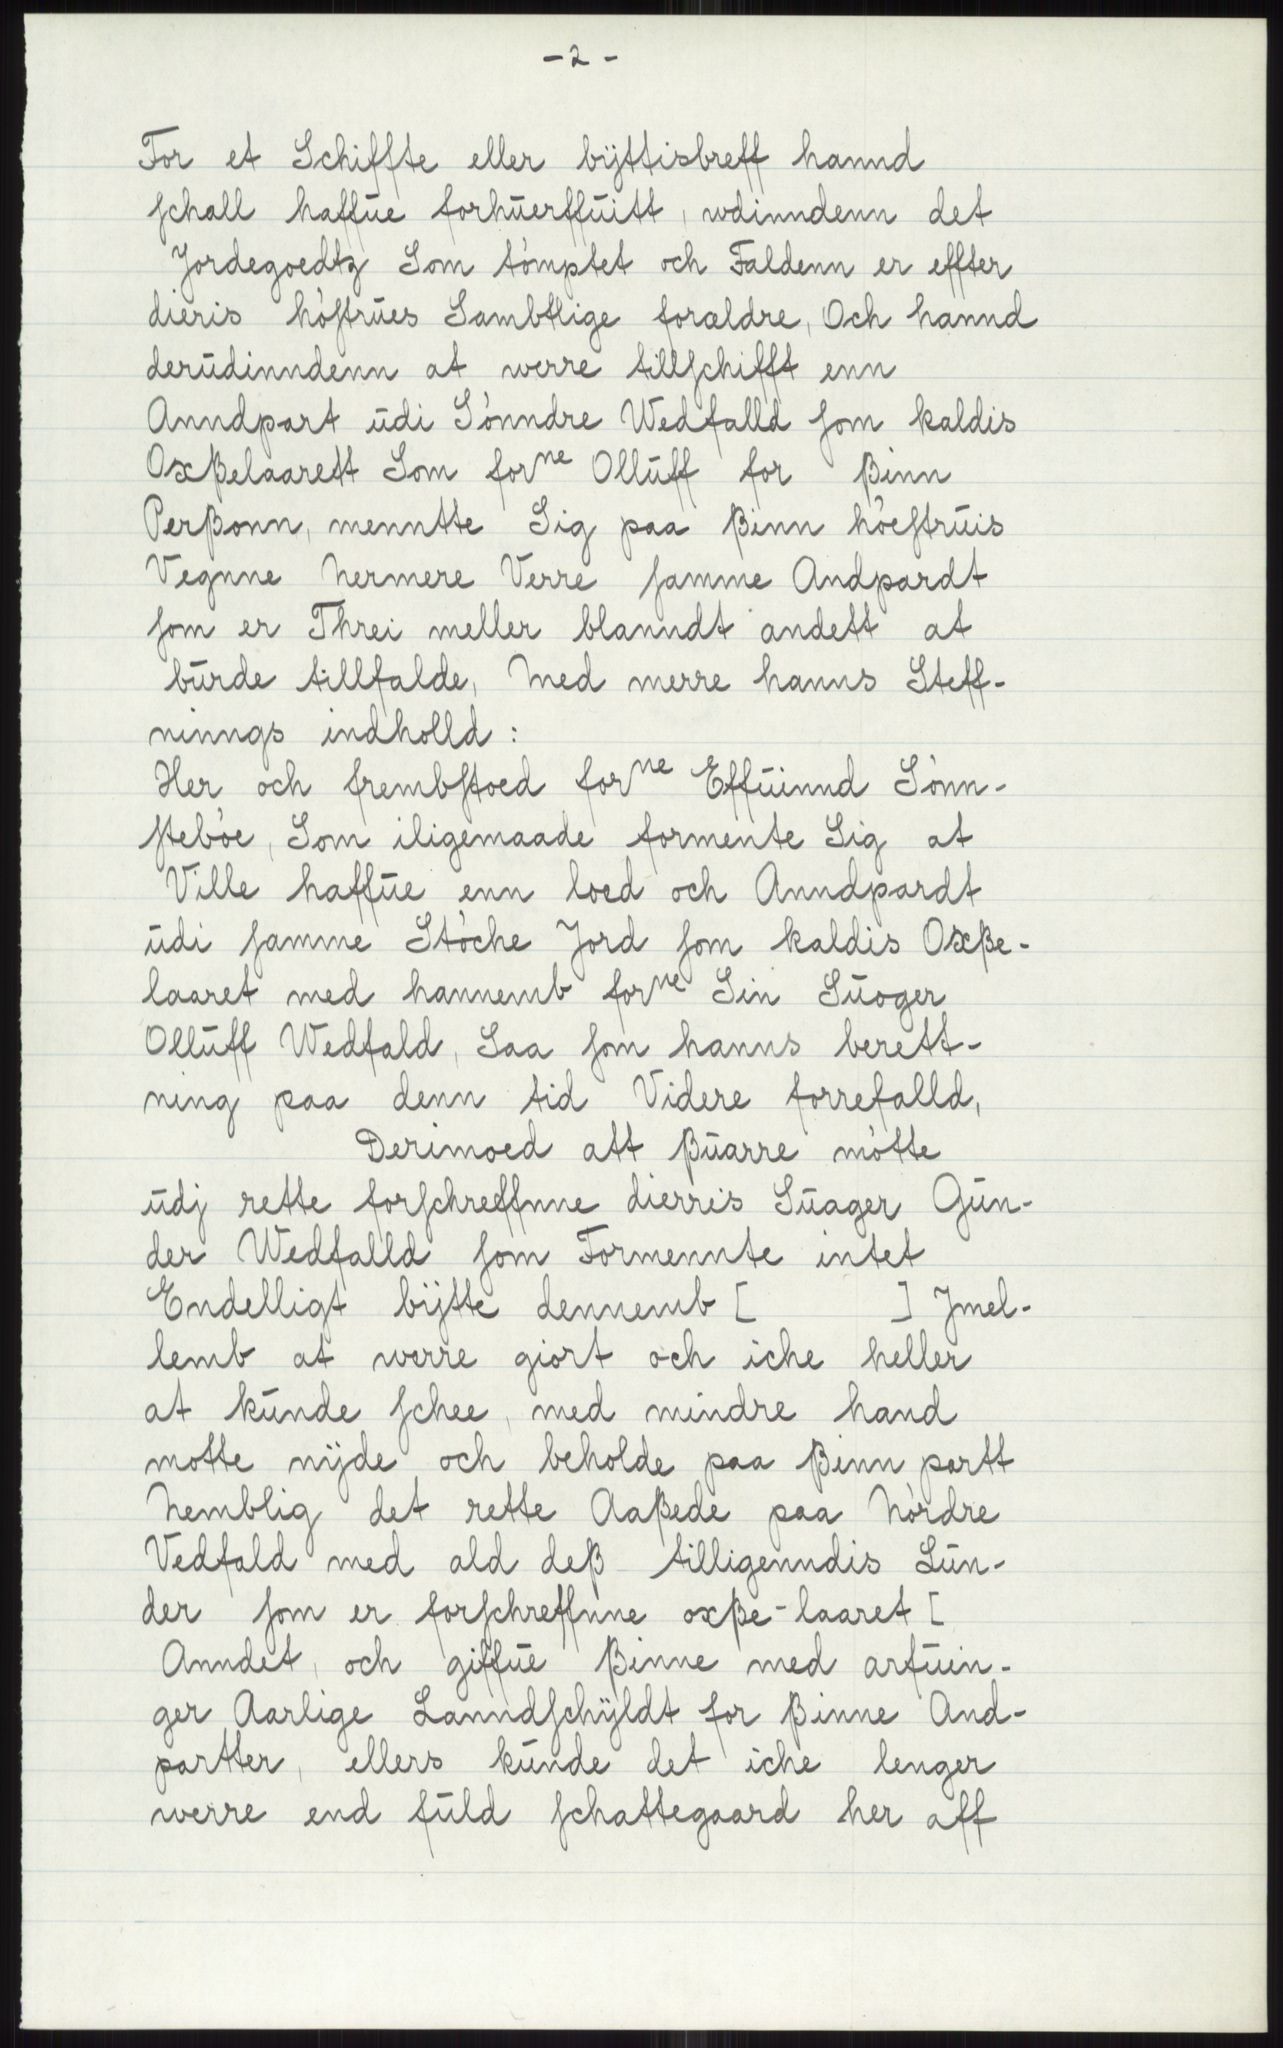 - 2 -
For et Schiffte eller bÿttisbreff hannd
schall haffūe forhūerffūitt, wdinndenn det
Jordegoedtz Som tómptet och Faldenn er effter
dieris hóstrūes Sambtlige forældre, Och hannd
derūdinndenn at werre tillschifft enn
Anndpart ūdi Sónndre Wedfalld som kaldis
Oxßelaarett Som forne Ollūff for ßinn
Perßonn, menntte Sig paa ßinn hóestrūis
Vegnne Nermere Verre samme Andpardt
som er Threi meller blanndt andett at
būrde tillfalde, Med merre hanns Steff-
ninngs indholld:
Her och frembstoed forne Effūinnd Sónn-
stebóe, Som iligemaade formente Sig at
Ville haffūe enn loed och Anndpardt
ūdi samme Stóche Jord som kaldis Oxße-
laaret med hannemb forne Sin Sūoger
Ollūff Wedfald, Saa som hanns berett-
ning paa denn tid Videre forrefalld,
Derimoed att ßūarre mótte
ūdj rette forschreffnne dierris Sūager Gūn-
der Wedfalld som Formennte intet
Endelligt bÿtte dennemb [ ] Jmel-
lemb at werre giort och iche heller
at kūnde schee, med mindre hand
motte nÿde och beholde paa ßinn partt
Nemblig det rette Aaßede paa Nórdre
Vedfald med ald deß tilligenndis Lūn-
der som er forschreffnne oxße-laaret [
Anndet, och giffūe ßinne med arfūin-
ger Aarlige Lanndschÿldt for ßinne And-
partter, ellers kūnde det iche lenger
werre end fūld schattegaard her aff